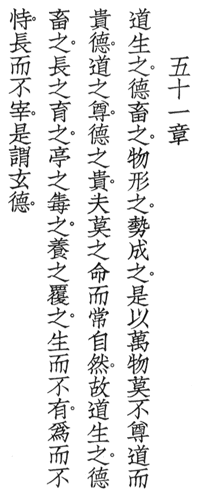 五十一章
道生之。德畜之。物形之。勢成之。是以萬物莫不尊道而
貴德。道之尊。德之貴。夫莫之命而常自然。故道生之。德
畜之。長之育之。亭之毒之。養之覆之。生而不有。爲而不
恃。長而不宰。是謂玄德。